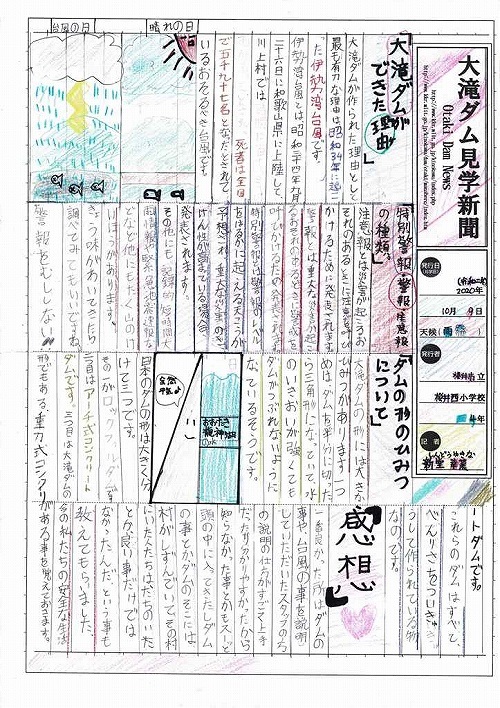 大滝ダム見学新聞
Otaki Dam News
発行日
(令和二年)
2020年
10月 9日
天候(雨)
発行者
桜井市立
桜井西小学校
4年
記者
「大滝ダムが
できた理由」
大滝ダムが作られた理由として
最も有力な理由は昭和34年に起こ
った伊勢湾台風です。
伊勢湾台風とは昭和三十四年九月
二十六日に和歌山県に上陸して
川上村では
死者は全国
で五千九十七名となったとされて
いるおそるべき台風です。
晴れの日
台風の日
特別警報・警報・注意報
の種類。
注意報とは災害が起こるお
それのあるときに注意をよび
かけるために発表されます。
警報とは重大な災害が起こ
るおそれのあるときに警戒を
呼びかけるため発表されます。
特別警報は警報のレベル
をはるかに超える大雨が
予想され、重大な災害のき
けん性が高まている場合
発表されます。
その他にも、記録的短時間大
雨情報、緊急地震速報な
どなど他にもたく山のけ
いほうがあります。
きょう味がわいてきたら
調べてみてもいいですね。
警報をむししない!!
「ダムの形のひみつ
について」
大滝ダムの形には大きな
ひみつがあります。一つ
めは、ダムを半分に切った
ら三角形になっていて、水
のいきおいが強くても
ダムがつぶれないように
なっているそうです。
おおたき
龍神湖
日本のダムの形は大きく分
けて三つです。
その一がロックフィルダム、
二つ目はアーチ式コンクリート
ダムです。三つ目は大滝ダムの
形でもある、重力式コンクリ
ートダムです。
これらのダムはすべて、
べんりさをついきゅう
をして作られている物
なのです。
「感想」
一番良かった所はダムの
事や台風の事を説明
していただいたスタッフの方
の説明の仕方がすごく上手
だったり分かりやすかったから
知らなかった事とかもスーと
頭の中に入ってきたしダム
の事とかダムのそこには
村がしずんでいてその村
にいた人たちはだちのいた
とか良い事だけでは
なかったんだ、という事も
教えてもらいました。
今の私たちの安全な生活
がある事を覚えておきます。